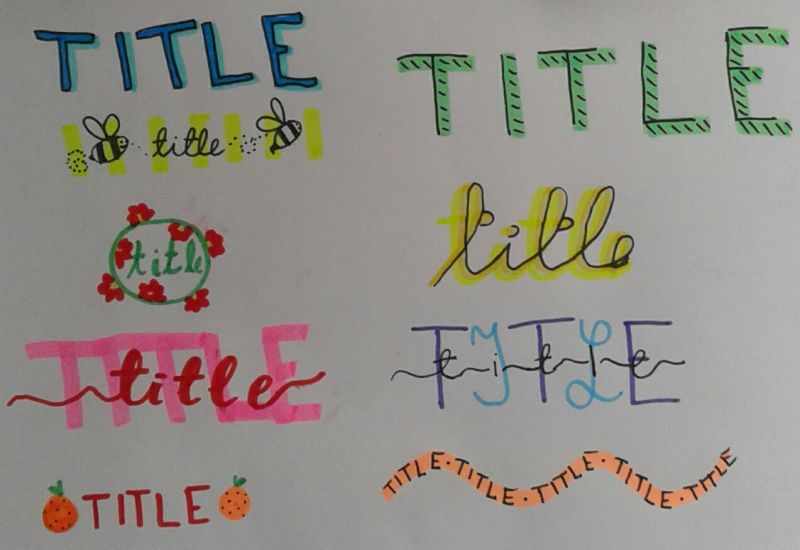 TITLE
title
title
TITLE
title
TITLE
TITLE
title
TITLE
title
TITLE·TITLE·TITLE·TITLE·TITLE